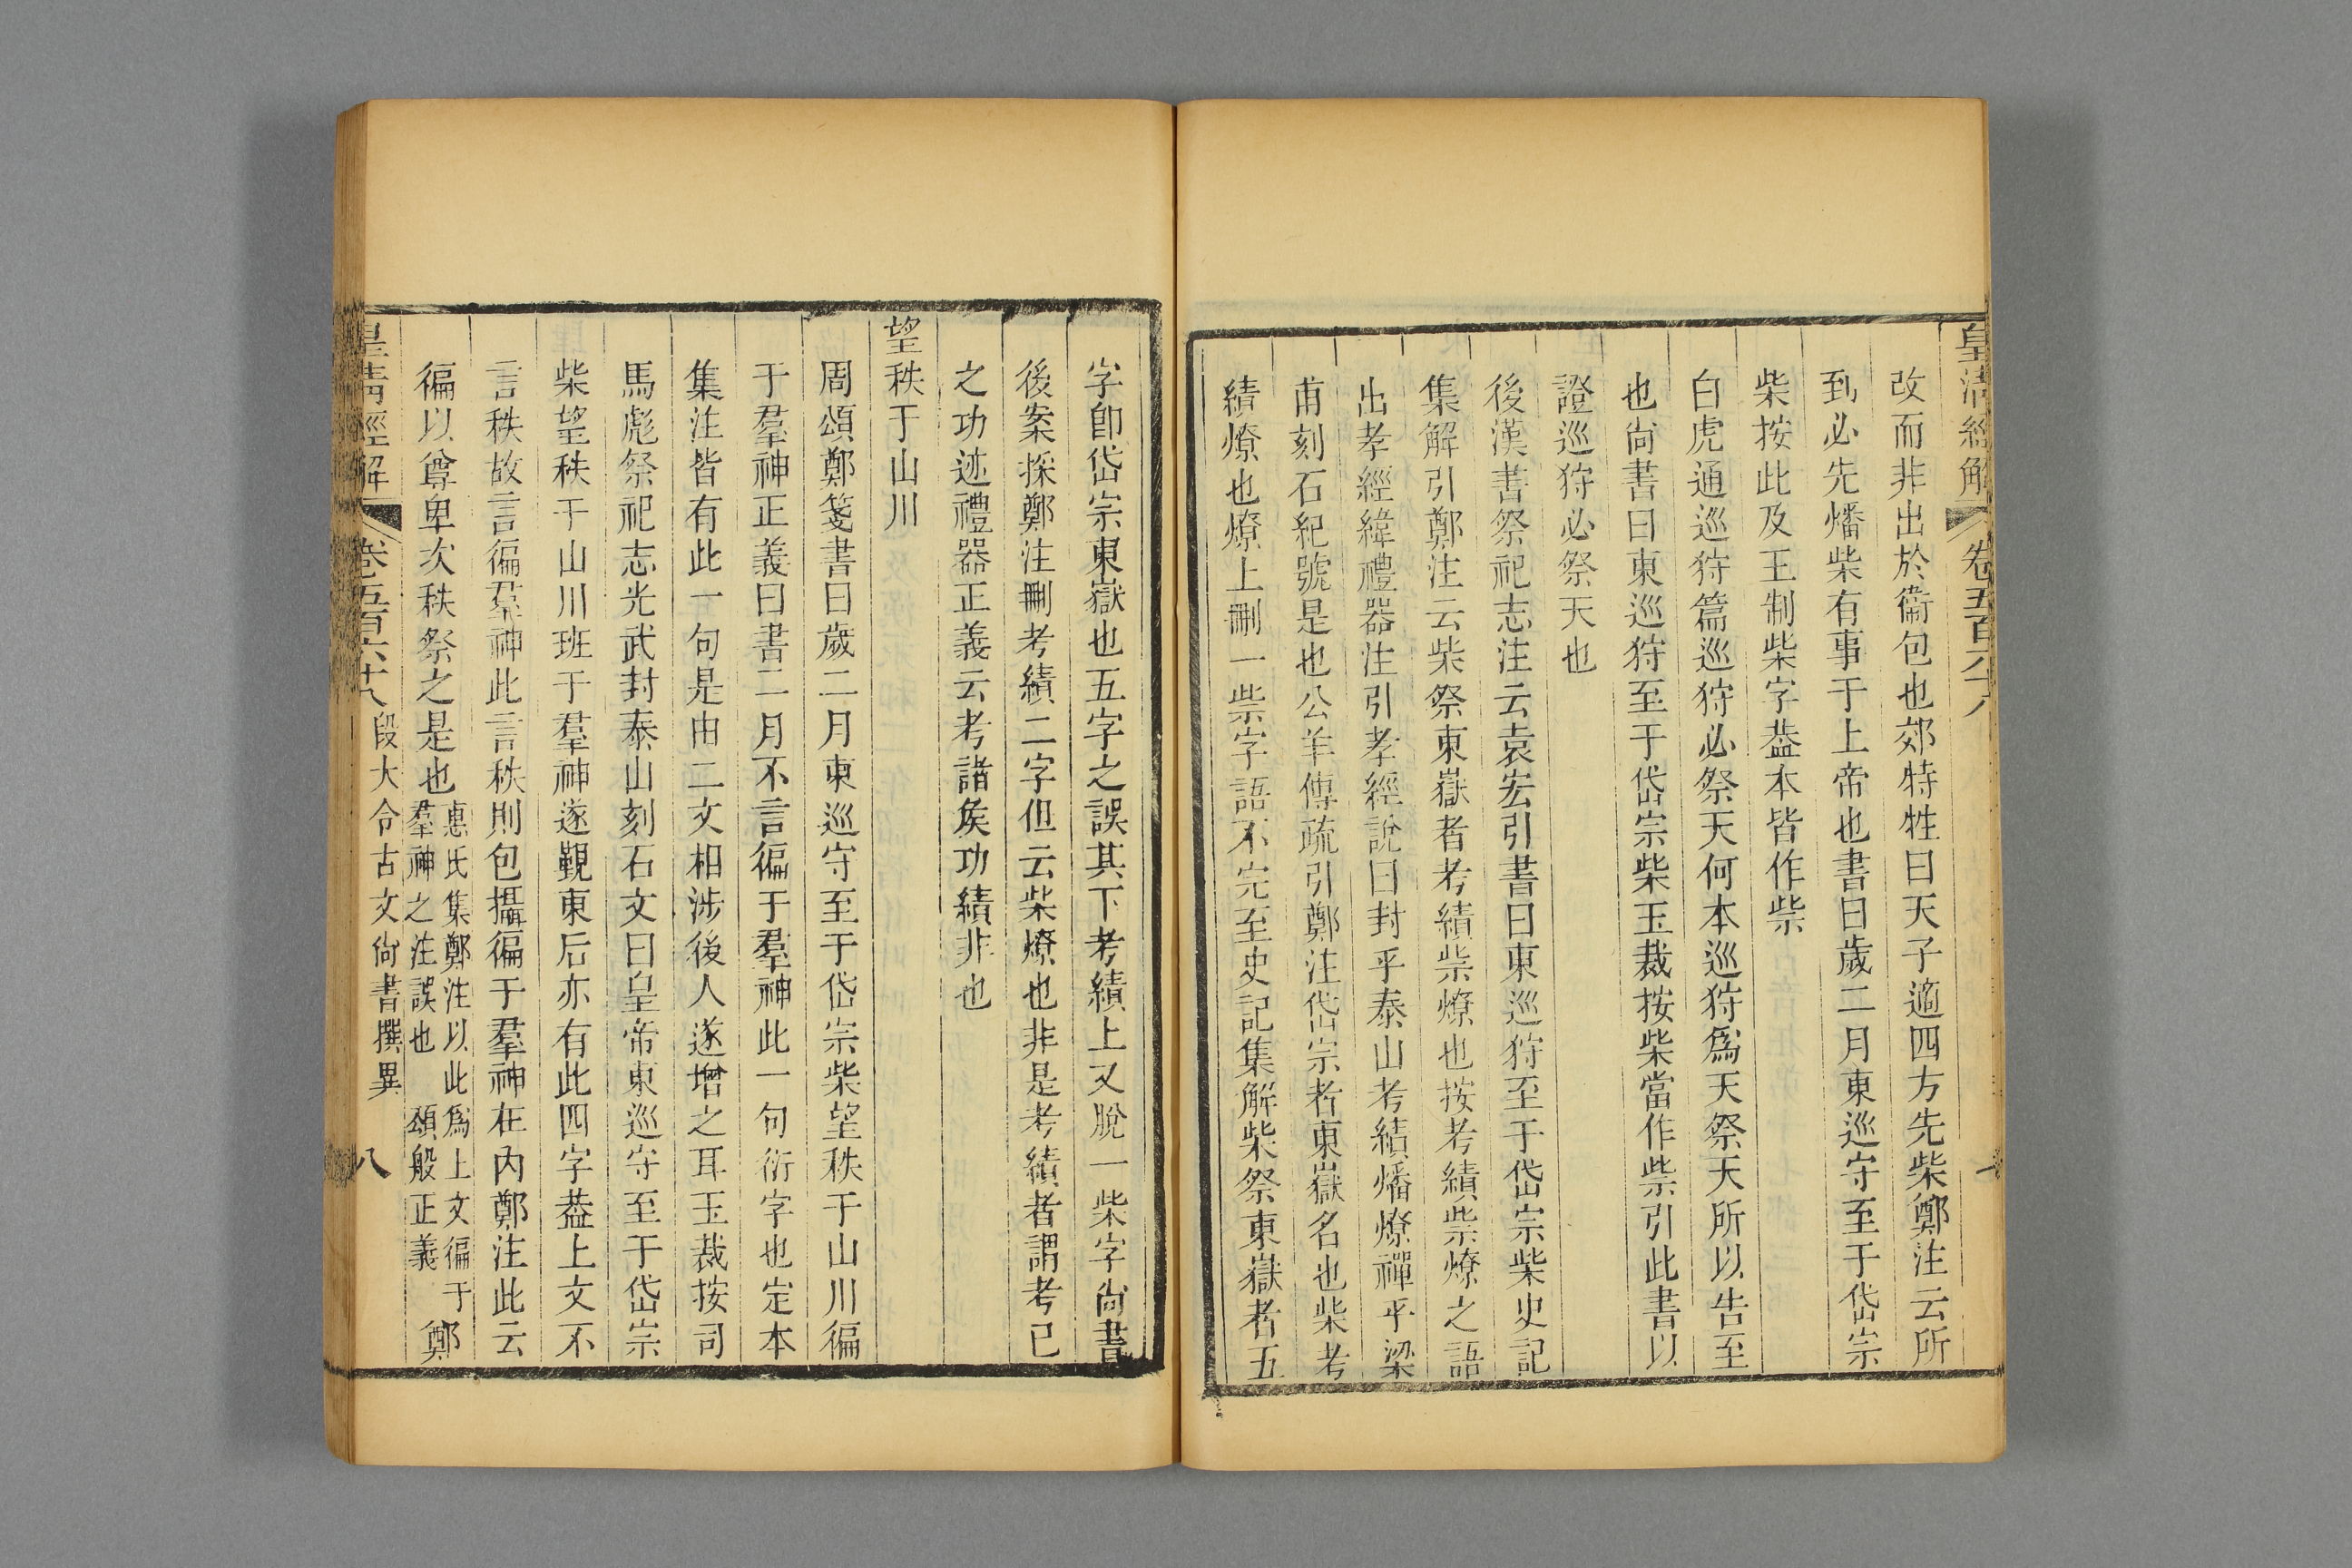 皇清經解 卷五百六十八 七
改而非出於衞包也郊特牲曰天子適四方先柴鄭注云所
到必先燔柴有事于上帝也書曰歲二月東巡守至于岱宗
柴按此及王制柴字葢本皆作祡
白虎通巡狩篇巡狩必祭天何本巡狩爲天祭天所以告至
也尙書曰東巡狩至于岱宗柴玉裁按柴當作祡引此書以
證巡狩必祭天也
後漢書祭祀志注云袁宏引書曰東巡狩至于岱宗柴史記
集解引鄭注云柴祭東嶽者考績祡燎也按考績祡燎之語
出孝經緯禮器注引孝經說曰封乎泰山考績燔燎禪乎梁
甫刻石紀號是也公羊傳疏引鄭注岱宗者東嶽名也柴考
績燎也燎上刪一祡字語不完至史記集解柴祭東嶽者五
字卽岱宗東嶽也五字之誤其下考績上又脫一柴字尙書
後案採鄭注刪考績二字但云柴燎也非是考績者謂考已
之功迹禮器正義云考諸矦功績非也
望秩于山川
周頌鄭箋書曰歲二月東巡守至于岱宗柴望秩于山川徧
于羣神正義曰書二月不言徧于羣神此一句衍字也定本
集注皆有此一句是由二文相涉後人遂增之耳玉裁按司
馬彪祭祀志光武封泰山刻石文曰皇帝東巡守至于岱宗
柴望秩于山川班于羣神遂覲東后亦有此四字葢上文不
言秩故言徧羣神此言秩則包攝徧于羣神在內鄭注此云
徧以尊卑次秩祭之是也惠氏集鄭注以此爲上文徧于羣神之注誤也 頌般正義 鄭
皇清經解 卷五百六十八 段大令古文尙書撰異 八